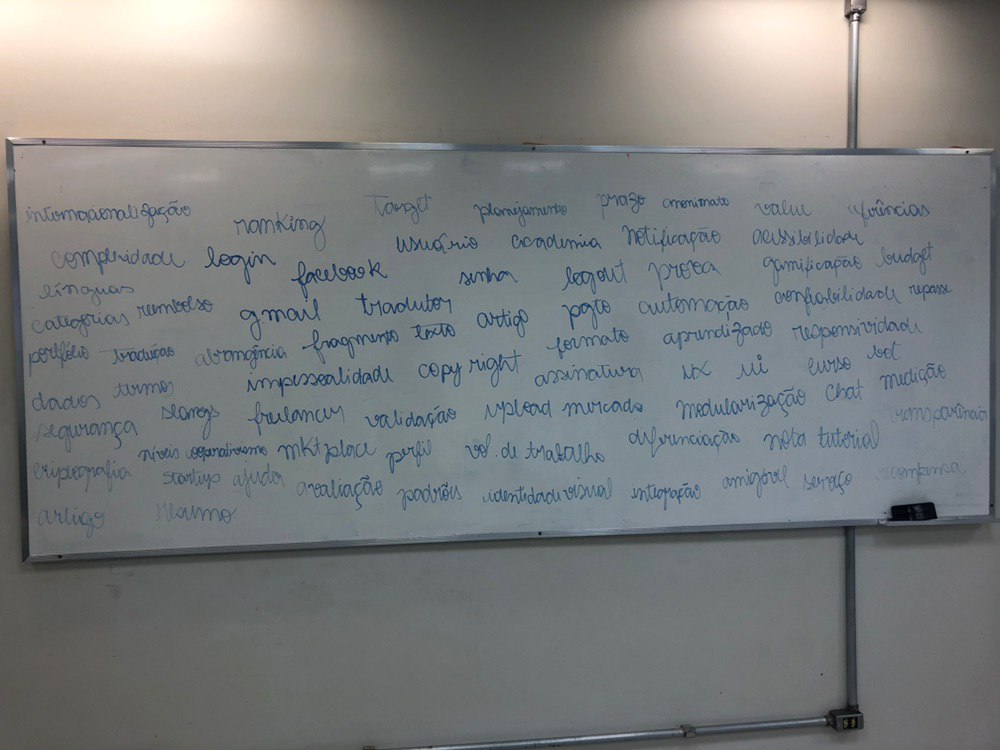 internacionalização ranking Target planejamento prazo anonimato value
complexidade login usuário academia notificação acissibilidade
línguas facebook senha logout prova gamificação budget
categorias reembolso gmail tradutor artigo pgto automação confiabilidade repasse
portfólio tradução abrangência fragmento texto formato aprendizado responsividade
dados termos impessoalidade copyright assinatura ux ui curso bot
segurança slangs freelancer validação upload mercado modularização chat medição
criptografia níveis cooperativismo mktplace perfil vol. de trabalho diferenciação nota tutorial transparência
startup ajuda avaliação padrões identidade visual integração amigável serviço recompensa
artigo resumo